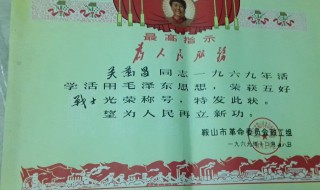 最高指示
为人民服务
同志一九六九年活
学活用毛泽东思想，荣获五好
战士光荣称号，特发此状。
望为人民再立新功。
鞍山市革命委员会
一九六九年十二月